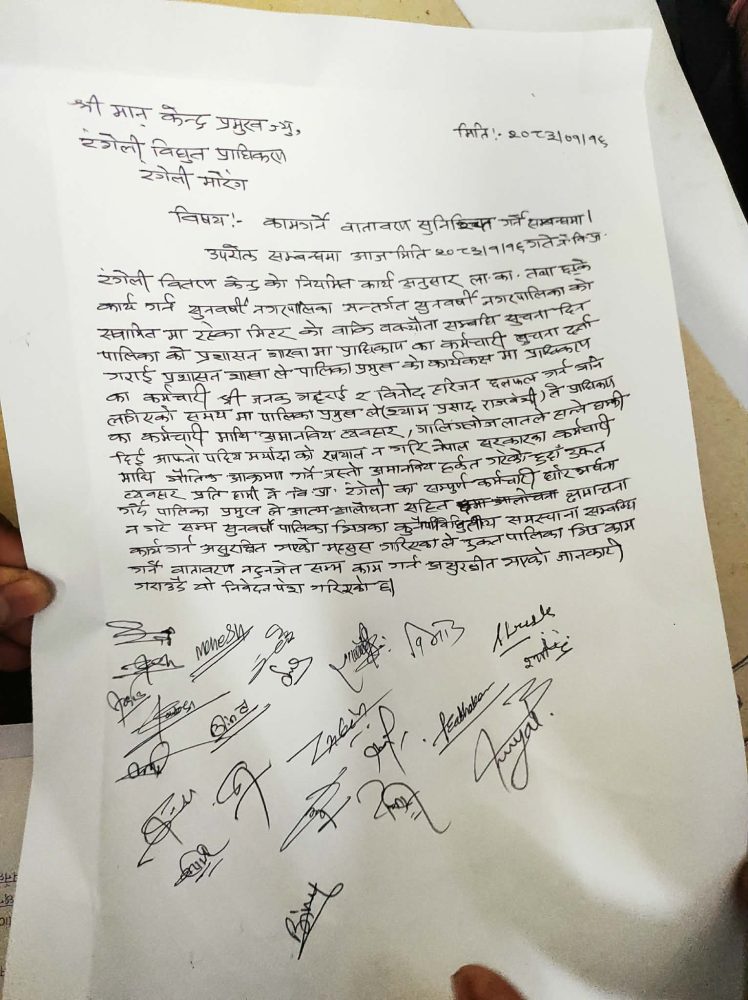 श्री मान् केन्द्र प्रमुख ज्यु,
मिति:- २०८३/०१/१६
रंगेली विद्युत प्राधिकरण
रंगेली मोरंग
विषय:- कामगर्ने वातावरण सुनिश्चित गर्ने सम्बन्धमा।
उपरोक्त सम्बन्धमा आज मिति २०८३/१/१६ गते ने.वि.प्रा.
रंगेली वितरण केन्द्र को नियमित कार्य अनुसार ला.का. तथा
कार्य गर्न सुनवर्षी नगरपालिका अन्तर्गत सुनवर्षी नगरपालिका को
स्वामित्व मा रहेका मिटर को बाकि वक्यौता सम्बधि सुचना दिन
पालिका को प्रशासन शाखा मा प्राधिकरण का कर्मचारी सुचना दर्ता
गराई प्रशासन शाखा ले पालिका प्रमुख को कार्यकक्ष मा प्राधिकरण
का कर्मचारी श्री जनक गहतराई र विनोद हरिजन छलफल गर्न भनि
लगिएको समय मा पालिका प्रमुख ले (श्याम प्रसाद राजवंशी) ले प्राधिकरण
का कर्मचारी माथि अमानविय व्यवहार, गालिगलोज लातले हान्ने धम्की
दिई आफ्नो पदिय मर्यादा को ख्याल न गरि नेपाल सरकारका कर्मचारी
माथि भौतिक आक्रमण गर्ने जस्तो अमानविय हर्कत गरेको हुदाँ उक्त
व्यवहार प्रति हामी ने.वि.प्रा. रंगेली का सम्पूर्ण कर्मचारी घोर भर्त्सना
गर्दै पालिका प्रमुख ले आत्म आलोचना सहित क्षमायाचना
न गरे सम्म सुनवर्षी पालिका भित्रका कुनैपनि विधुतीय समस्याका सम्बन्धमा
कार्य गर्न असुरक्षित भएको महसुस गरिएका ले उक्त पालिका भित्र काम
गर्ने वातावरण नहुन्जेल सम्म काम गर्न असुरक्षीत भएको जानकारी
गराउँदै यो निवेदन पेश गरिएको छ।
Mahesh
Bind
Prabhakar
Binay